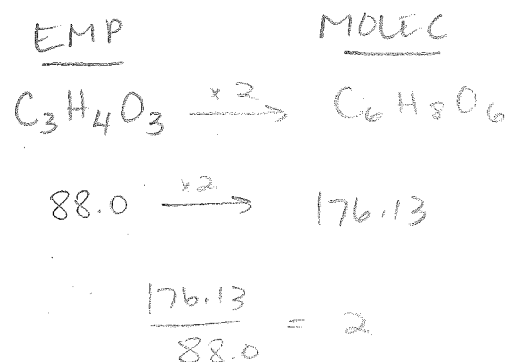 EMP MOLEC
C₃H₄O₃ x2 → C₆H₈O₆
88.0 x2 → 176.13
176.13
88.0 = 2